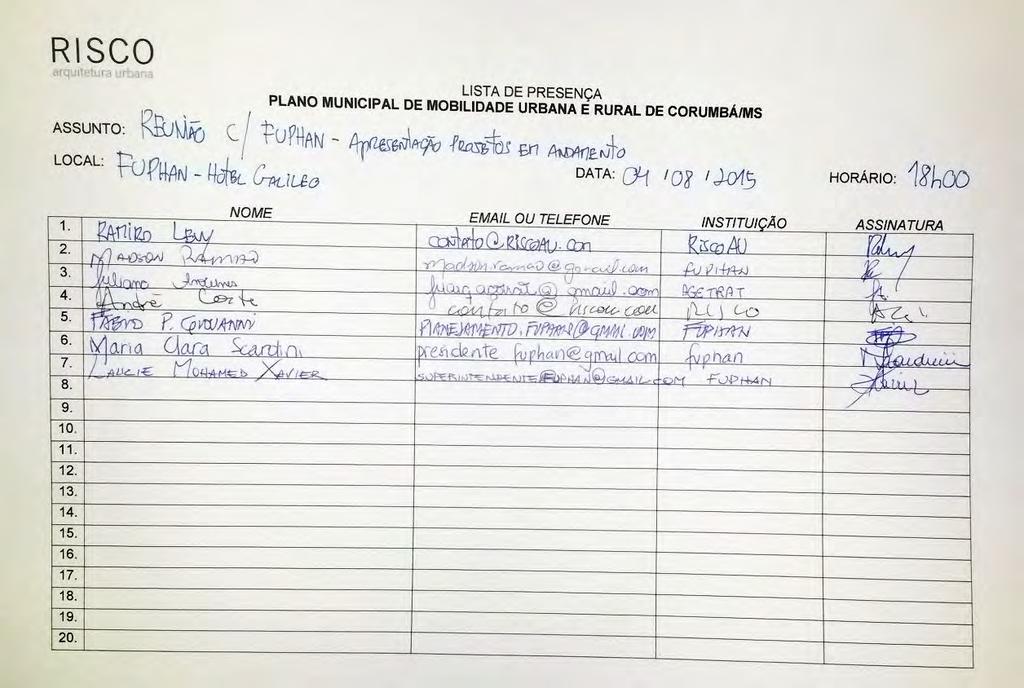 RISCO
arquitetura urbana
LISTA DE PRESENÇA
PLANO MUNICIPAL DE MOBILIDADE URBANA E RURAL DE CORUMBÁ/MS
ASSUNTO: REUNIÃO C/ FUPHAN - APRESENTAÇÃO PROJETOS EM ANDAMENTO
LOCAL: FUPHAN - HOTEL GALILEO DATA: 04/08/2015 HORÁRIO: 18h00
NOME EMAIL OU TELEFONE INSTITUIÇÃO ASSINATURA
1. RAMIRO LEVY contato@RISCOAU.com RISCOAU
2. MADSON RAMÃO madson.ramao@gmail.com FUPHAN
3. Juliano @gmail.com AGETRAT
4. André Corte contato@riscoau.com RISCO
5. FABIO P. GIOVANNI PLANEJAMENTO.FUPHAN@GMAIL.COM FUPHAN
6. Maria Clara Scardini presidente fuphan@gmail.com fuphan
7. LAUCIE MOHAMED XAVIER SUPERINTENDENTEFUPHAN@GMAIL.COM FUPHAN
8.
9.
10.
11.
12.
13.
14.
15.
16.
17.
18.
19.
20.